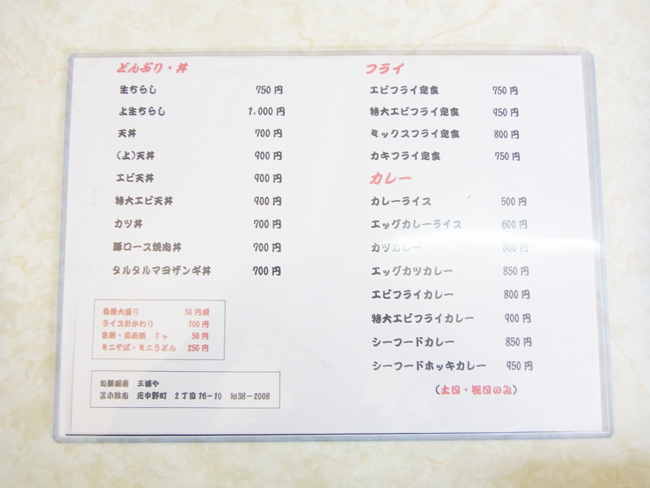 どんぶり・丼
生ちらし 750円
上生ちらし 1,000円
天丼 700円
(上)天丼 900円
エビ天丼 900円
特大エビ天丼 900円
カツ丼 700円
豚ロース焼肉丼 700円
タルタルマヨザンギ丼 700円
各種大盛り 50円増
ライスおかわり 100円
生卵・ 1ヶ 50円
ミニそば・ミニうどん 250円
三浦や
苫小牧市 元中野町 2丁目16-10 ℡38-2008
フライ
エビフライ定食 750円
特大エビフライ定食 950円
ミックスフライ定食 800円
カキフライ定食 750円
カレー
カレーライス 500円
エッグカレーライス 600円
カツカレー 800円
エッグカツカレー 850円
エビフライカレー 800円
特大エビフライカレー 900円
シーフードカレー 850円
シーフードホッキカレー 950円
(土日・祝日のみ)